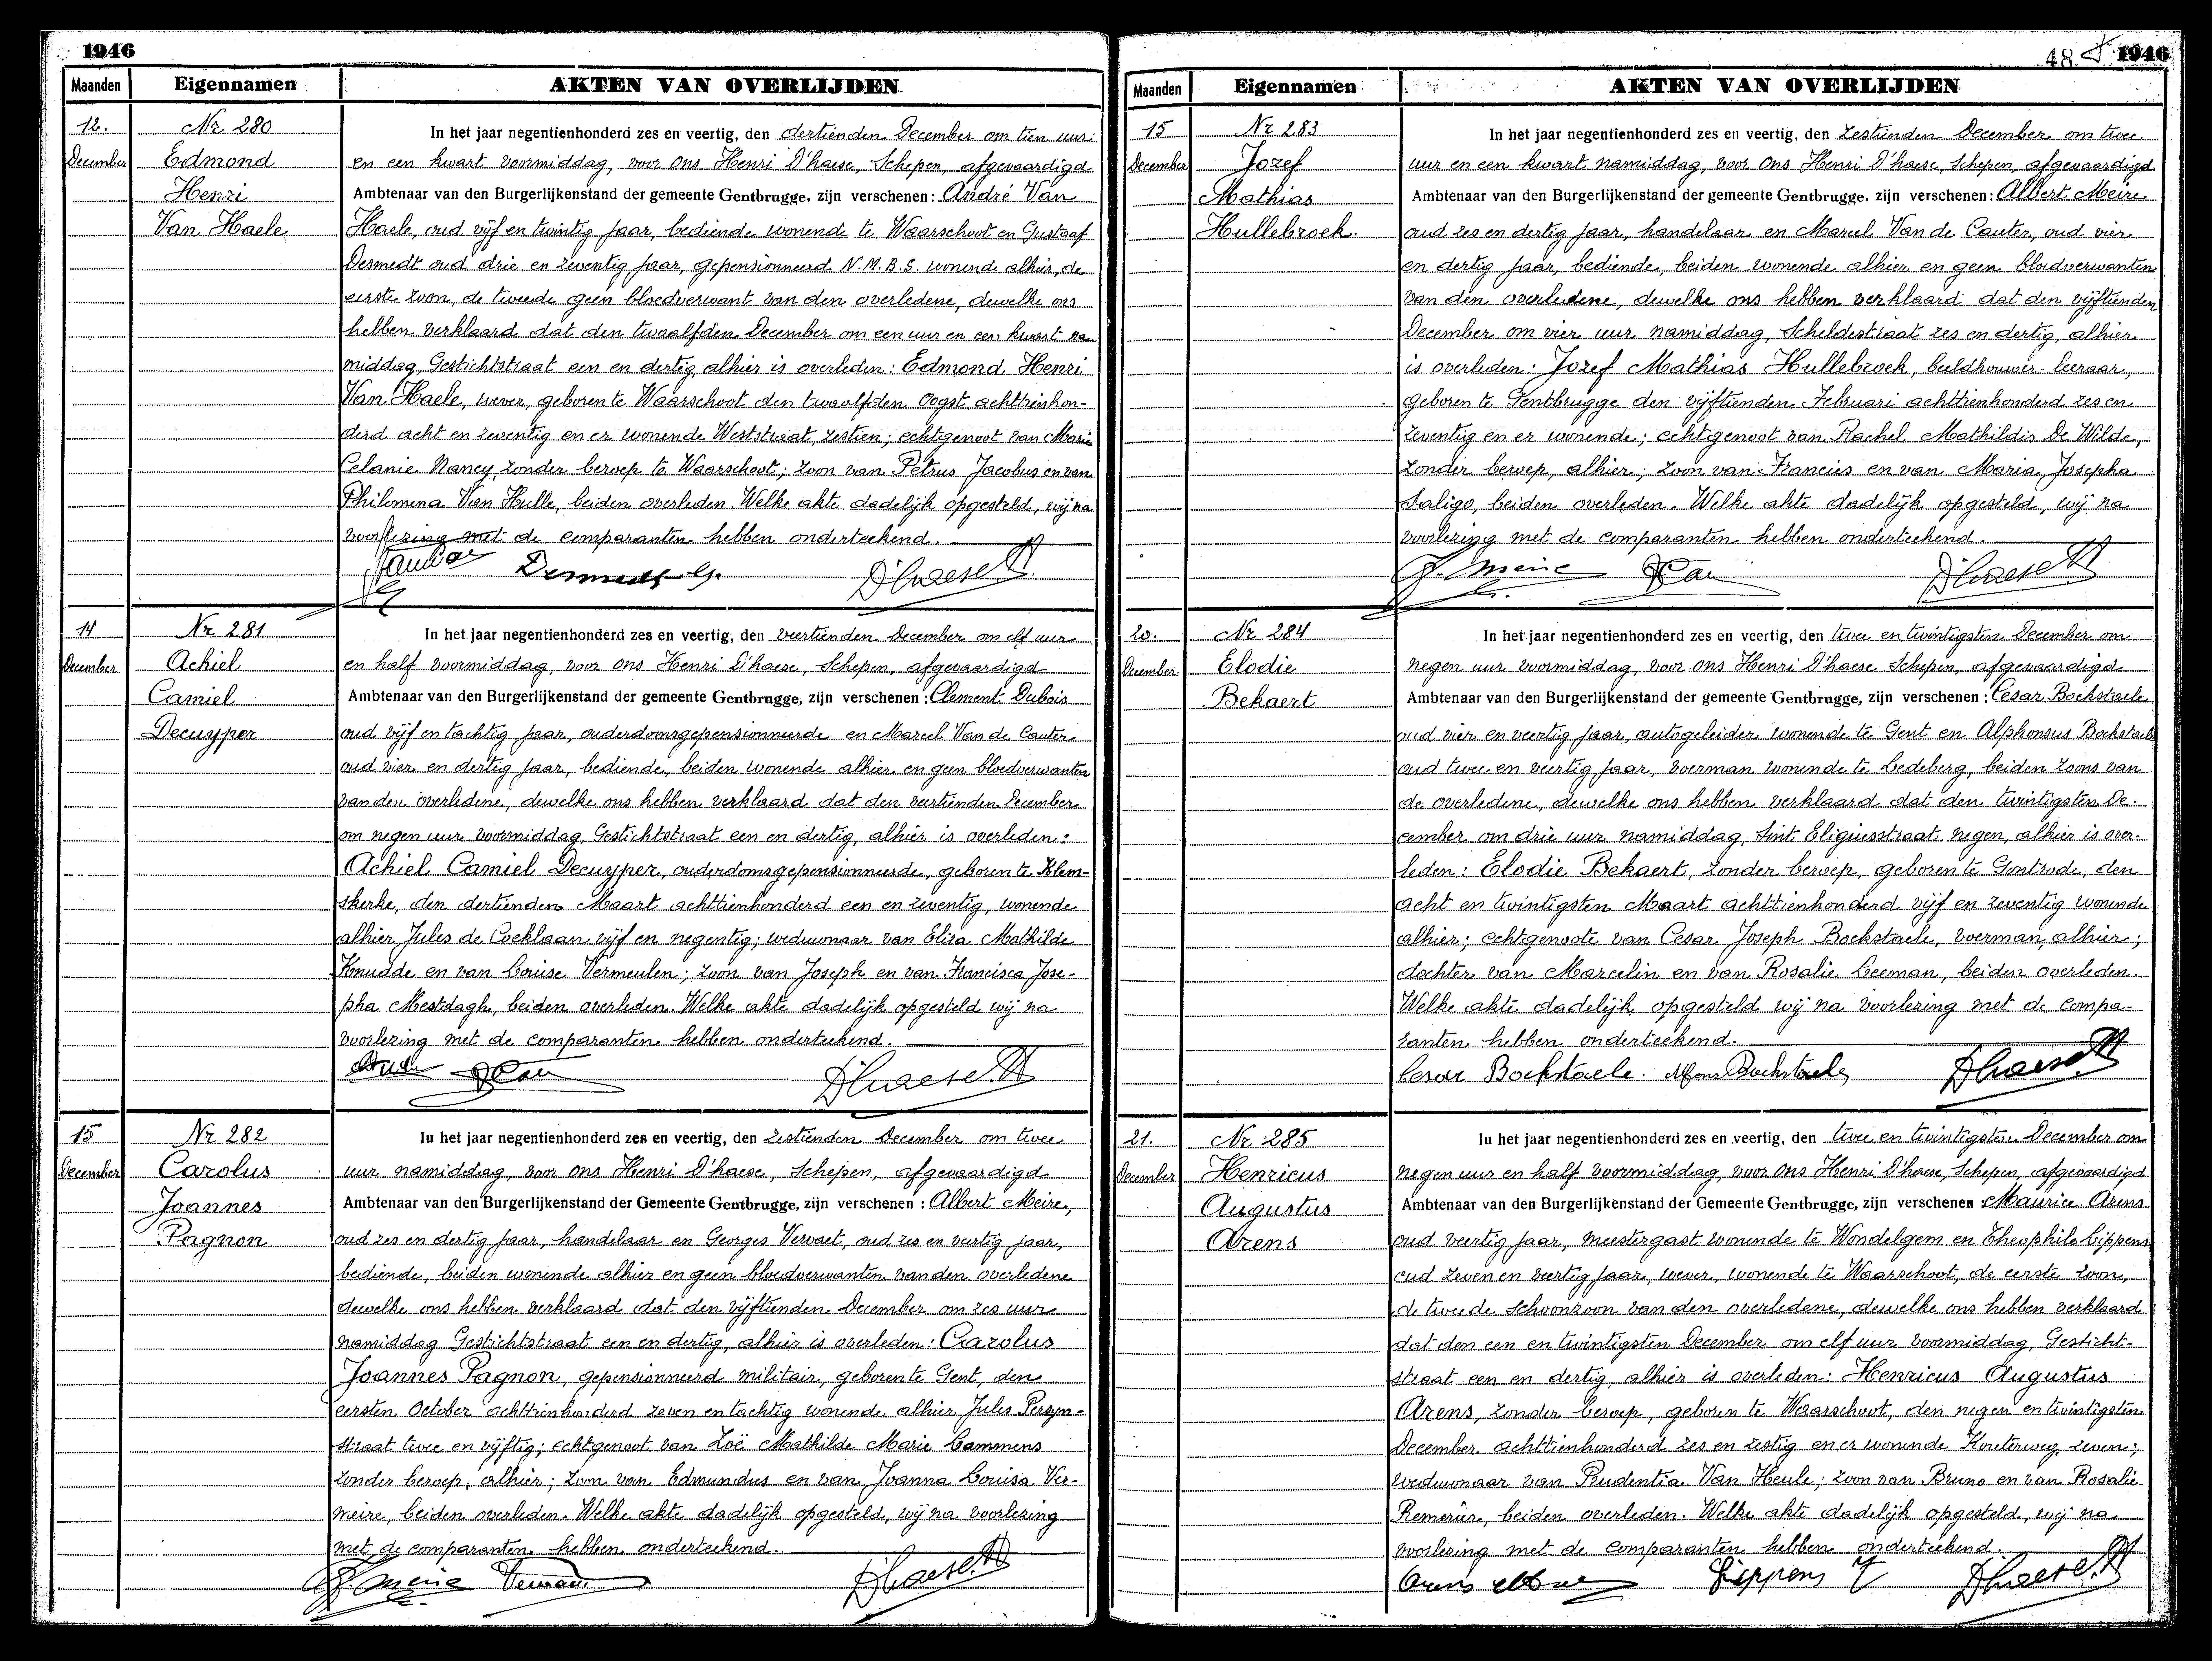 1946
Maanden Eigennamen AKTEN VAN OVERLIJDEN
12. Nr 280 In het jaar negentienhonderd zes en veertig, den dertienden December om tien uur
December Edmond en een kwart voormiddag, voor ons Henri D'haese, Schepen, afgevaardigd
Henri Ambtenaar van den Burgerlijkenstand der gemeente Gentbrugge, zijn verschenen: André Van
Van Haele Haele, oud vijf en twintig jaar, bediende wonende te Waarschoot en Gustaaf
Desmedt oud drie en zeventig jaar, gepensionneerd N.M.B.S. wonende alhier, de
eerste zoon, de tweede geen bloedverwant van den overledene, dewelke ons
hebben verklaard dat den twaalfden December om een uur en een kwart na
middag, Gestichtstraat een en dertig alhier is overleden: Edmond Henri
Van Haele, wever, geboren te Waarschoot den twaalfden Oogst achttienhon-
derd acht en zeventig en er wonende Weststraat, zestien; echtgenoot van Marie
Celanie Nancy, zonder beroep te Waarschoot; zoon van Petrus Jacobus en van
Philomena Van Hulle, beiden overleden. Welke akte dadelijk opgesteld, wij na
voorlezing met de comparanten hebben onderteekend.
Desmedt G. D'haese H
14 Nr 281 In het jaar negentienhonderd zes en veertig, den veertienden December om elf uur
December Achiel en half voormiddag, voor ons Henri D'haese, Schepen, afgevaardigd
Camiel Ambtenaar van den Burgerlijkenstand der gemeente Gentbrugge, zijn verschenen: Clement Dubois
Decuyper oud vijf en tachtig jaar, ouderdomsgepensionneerde en Marcel Van de Cauter
oud vier en dertig jaar, bediende, beiden wonende alhier en geen bloedverwanten
van den overledene, dewelke ons hebben verklaard dat den veertienden December
om negen uur voormiddag, Gestichtstraat een en dertig, alhier is overleden:
Achiel Camiel Decuyper, ouderdomsgepensionneerde, geboren te Klem-
skerke, den dertienden Maart achttienhonderd een en zeventig, wonende
alhier Jules de Cocklaan vijf en negentig; weduwnaar van Eliza Mathilde
Knudde en van Louise Vermeulen; zoon van Joseph en van Francisca Jose-
pha Mestdagh, beiden overleden. Welke akte dadelijk opgesteld wij na
voorlezing met de comparanten hebben onderteekend.
D'haese H
15 Nr 282 Iu het jaar negentienhonderd zes en veertig, den zestienden December om twee
December Carolus uur namiddag, voor ons Henri D'haese, Schepen, afgevaardigd
Joannes Ambtenaar van den Burgerlijkenstand der Gemeente Gentbrugge, zijn verschenen : Albert Meire,
Pagnon oud zes en dertig jaar, handelaar en Georges Vervaet, oud zes en veertig jaar,
bediende, beiden wonende alhier en geen bloedverwanten van den overledene
dewelke ons hebben verklaard dat den vijftienden December om zes uur
namiddag Gestichtstraat een en dertig, alhier is overleden: Carolus
Joannes Pagnon, gepensionneerd militair, geboren te Gent, den
eersten October achttienhonderd zeven en tachtig wonende alhier Jules Persyn-
straat twee en vijftig; echtgenoot van Zoë Mathilde Marie Lammens
zonder beroep, alhier; zoon van Edmundus en van Joanna Louisa Ver-
meire, beiden overleden. Welke akte dadelijk opgesteld, wij na voorlezing
met de comparanten hebben onderteekend.
Meire D'haese H
48 1946
Maanden Eigennamen AKTEN VAN OVERLIJDEN
15 Nr 283 In het jaar negentienhonderd zes en veertig, den zestienden December om twee
December Jozef uur en een kwart namiddag, voor ons Henri D'haese, Schepen, afgevaardigd
Mathias Ambtenaar van den Burgerlijkenstand der gemeente Gentbrugge, zijn verschenen: Albert Meire
Hullebroek. oud zes en dertig jaar, handelaar en Marcel Van de Cauter, oud vier
en dertig jaar, bediende, beiden wonende alhier en geen bloedverwanten
van den overledene, dewelke ons hebben verklaard dat den vijftienden
December om vier uur namiddag, Scheldestraat zes en dertig, alhier
is overleden: Jozef Mathias Hullebroek, beeldhouwer-leeraar,
geboren te Gentbrugge den vijftienden Februari achttienhonderd zes en
zeventig en er wonende; echtgenoot van Rachel Mathildis De Wilde,
zonder beroep, alhier; zoon van Francies en van Maria Josepha
Saligo, beiden overleden. Welke akte dadelijk opgesteld, wij na
voorlezing met de comparanten hebben onderteekend.
Meire D'haese H
20. Nr 284 In het jaar negentienhonderd zes en veertig, den twee en twintigsten December om
December Elodie negen uur voormiddag, voor ons Henri D'haese Schepen, afgevaardigd
Bekaert Ambtenaar van den Burgerlijkenstand der gemeente Gentbrugge, zijn verschenen : Cesar Bockstaele
oud vier en veertig jaar, autogeleider wonende te Gent en Alphonsus Bockstaele
oud twee en veertig jaar, voerman wonende te Ledeberg, beiden zoons van
de overledene, dewelke ons hebben verklaard dat den twintigsten De-
cember om drie uur namiddag, Sint Eligiusstraat negen, alhier is over-
leden: Elodie Bekaert, zonder beroep, geboren te Gontrode, den
acht en twintigsten Maart achttienhonderd vijf en zeventig wonende
alhier; echtgenoote van Cesar Joseph Bockstaele, voerman, alhier;
dochter van Marcelin en van Rosalie Leeman, beiden overleden.
Welke akte dadelijk opgesteld wij na voorlezing met de compa-
ranten hebben onderteekend.
Cesar Bockstaele. Alfons Bockstaele D'haese H
21. Nr 285 Iu het jaar negentienhonderd zes en veertig, den twee en twintigsten December om
December Henricus negen uur en half voormiddag, voor ons Henri D'haese, Schepen, afgevaardigd
Augustus Ambtenaar van den Burgerlijkenstand der Gemeente Gentbrugge, zijn verschenen : Maurice Arens
Arens oud veertig jaar, meestergast wonende te Wondelgem en Theophile Lippens
oud zeven en veertig jaar, wever, wonende te Waarschoot, de eerste zoon,
de tweede schoonzoon van den overledene, dewelke ons hebben verklaard
dat den een en twintigsten December om elf uur voormiddag, Gesticht-
straat een en dertig, alhier is overleden: Henricus Augustus
Arens, zonder beroep, geboren te Waarschoot, den negen en twintigsten
December achttienhonderd zes en zestig en er wonende Kouterweg, zeven;
weduwnaar van Prudentia Van Heule; zoon van Bruno en van Rosalie
Remerie, beiden overleden. Welke akte dadelijk opgesteld, wij na
voorlezing met de comparanten hebben onderteekend.
Arens Lippens T D'haese H